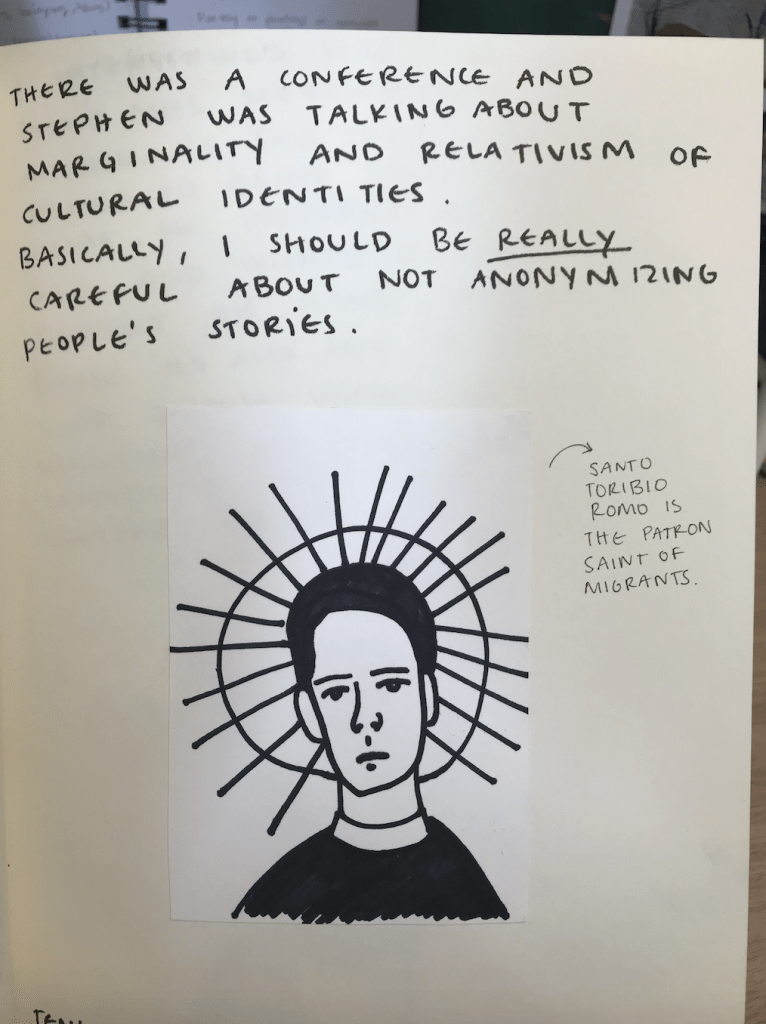 THERE WAS A CONFERENCE AND
STEPHEN WAS TALKING ABOUT
MARGINALITY AND RELATIVISM OF
CULTURAL IDENTITIES.
BASICALLY, I SHOULD BE REALLY
CAREFUL ABOUT NOT ANONYMIZING
PEOPLE'S STORIES.
SANTO
TORIBIO
ROMO IS
THE PATRON
SAINT OF
MIGRANTS.